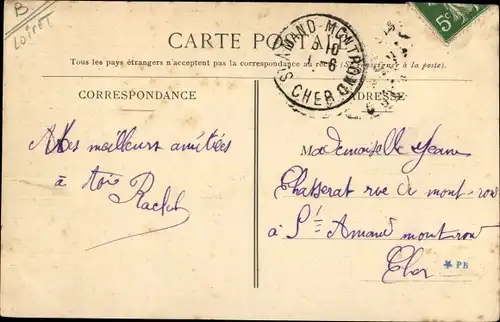 B
LOIRET
5c
CARTE POSTALE
Tous les pays étrangers n'acceptent pas la correspondance au recto (Se renseigner à la poste).
ST AMAND-MONTROND
CHER
CORRESPONDANCE
ADRESSE
Mes meilleurs amitiées
à toi Rachel
Mademoiselle Jeanne
rue de mont-rou
à St Amand montrou
Cher
★ PB